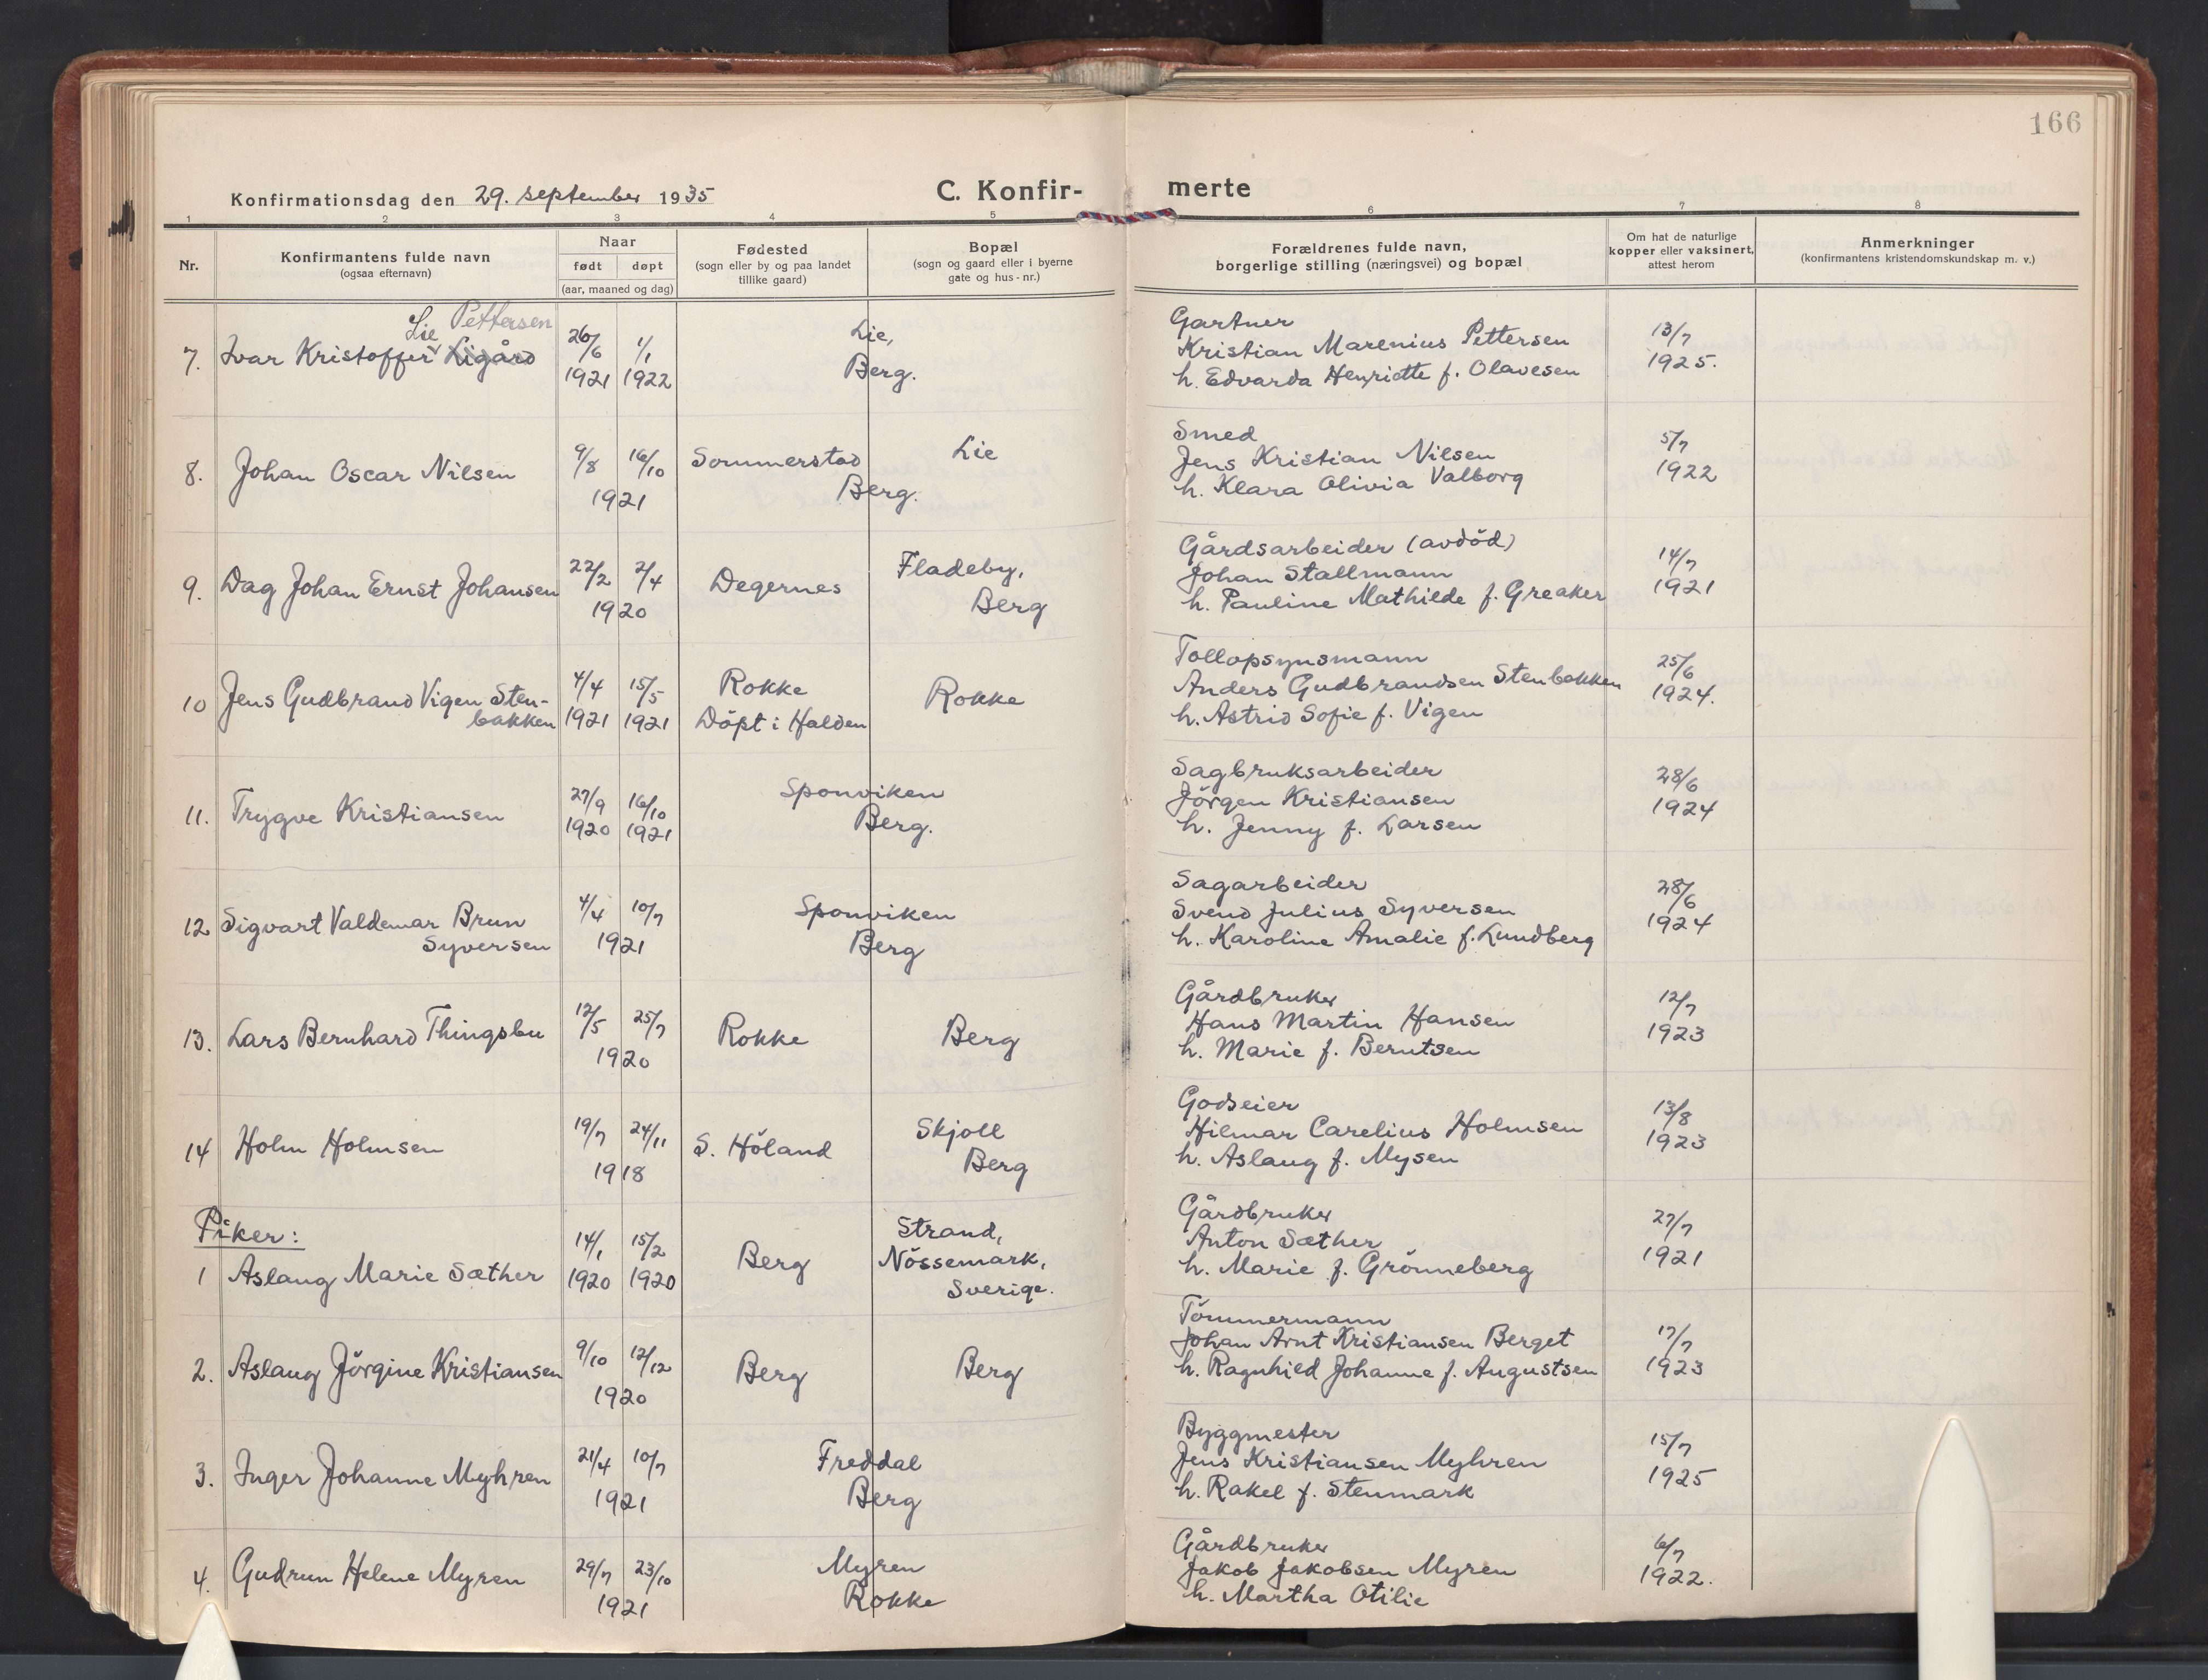 166
Konfirmationsdag den 29. september 1935
C. Konfir-
merte
1 2 3 4 5 6 7 8
Nr.
Konfirmantens fulde navn
(ogsaa efternavn)
Naar
født døpt
(aar, maaned og dag)
Fødested
(sogn eller by og paa landet
tillike gaard)
Bopæl
(sogn og gaard eller i byerne
gate og hus-nr.)
Forældrenes fulde navn,
borgerlige stilling (næringsvei) og bopæl
Om hat de naturlige
kopper eller vaksinert,
attest herom
Anmerkninger
(konfirmantens kristendomskundskap m. v.)
Lie Pettersen
7. Ivar Kristoffer Ligård
26/6 1/1
1921 1922
Lie,
Berg.
Gartner
Kristian Marenius Pettersen
h. Edvarda Henriette f. Olavesen
13/7
1925.
8. Johan Oscar Nilsen
9/8 16/10
1921
Sommerstad Lie
Berg.
Smed
Jens Kristian Nilsen
h. Klara Olivia Valborg
5/7
1922
9. Dag Johan Ernst Johansen
22/2 2/4
1920
Degernes
Fladeby,
Berg
Gårdsarbeider (avdöd)
Johan Stallmann
h. Pauline Mathilde f. Greaker
14/7
1921
10 Jens Gudbrand Vigen Sten-
bakken
4/4 15/5
1921 1921
Rokke
Döpt i Halden
Rokke
Tollopsynsmann
Anders Gudbrandsen Stenbakken
h. Astrid Sofie f. Vigen
25/6
1924.
11. Trygve Kristiansen
27/9 16/10
1920 1921
Sponviken
Berg.
Sagbruksarbeider
Jörgen Kristiansen
h. Jenny f. Larsen
28/6
1924
12 Sigvart Valdemar Brun
Syversen
4/4 10/7
1921
Sponviken
Berg
Sagarbeider
Svend Julius Syversen
h. Karoline Amalie f. Lundberg
28/6
1924
13. Lars Bernhard Thingsbu
12/5 25/7
1920
Rokke
Berg
Gårdbruker
Hans Martin Hansen
h. Marie f. Berntsen
12/7
1923
14 Holm Holmsen
19/7 24/11
1918
S. Höland
Skjoll
Berg
Godseier
Hilmar Carelius Holmsen
h. Aslaug f. Mysen
13/8
1923
Piker:
1 Aslaug Marie Sæther
14/1 15/2
1920 1920
Berg
Strand,
Nössemark,
Sverige.
Gårdbruker
Anton Sæther
h. Marie f. Grönneberg
27/7
1921
2. Aslaug Jörgine Kristiansen
9/10 12/12
1920
Berg
Berg
Tömmermann
Johan Arnt Kristiansen Berget
h. Ragnhild Johanne f. Augustsen
17/7
1923
3. Inger Johanne Myhren
21/4 10/7
1921
Freddal
Berg
Byggmester
Jens Kristiansen Myhren
h. Rakel f. Stenmark
15/7
1925
4. Gudrun Helene Myren
29/7 23/10
1921
Myren
Rokke
Gårdbruker
Jakob Jakobsen Myren
h. Martha Otilie
6/7
1922.